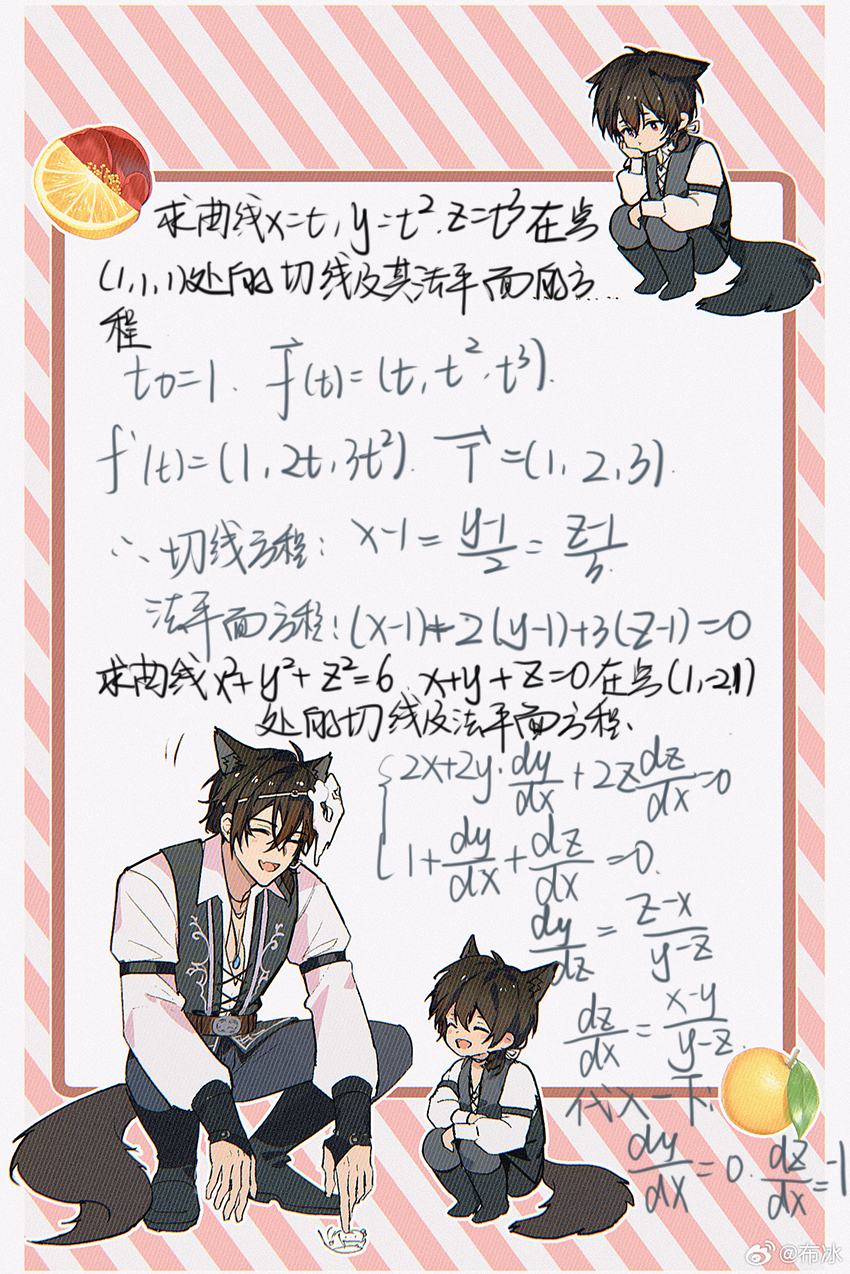 求曲线x=t, y=t², z=t³在点
(1,1,1)处的切线及其法平面的方
程
t0=1. f⃗(t)=(t, t², t³).
f'(t)=(1, 2t, 3t²). T⃗=(1, 2, 3).
∴切线方程: x-1=(y-1)/2=(z-1)/3.
法平面方程:(x-1)+2(y-1)+3(z-1)=0
求曲线x²+y²+z²=6, x+y+z=0在点(1,-2,1)
处的切线及法平面方程、
{2x+2y·dy/dx+2z dz/dx=0
1+dy/dx+dz/dx=0.
dy/dz=(z-x)/(y-z)
dz/dx=(x-y)/(y-z).
代入一下:
dy/dx=0. dz/dx=-1
@布冰